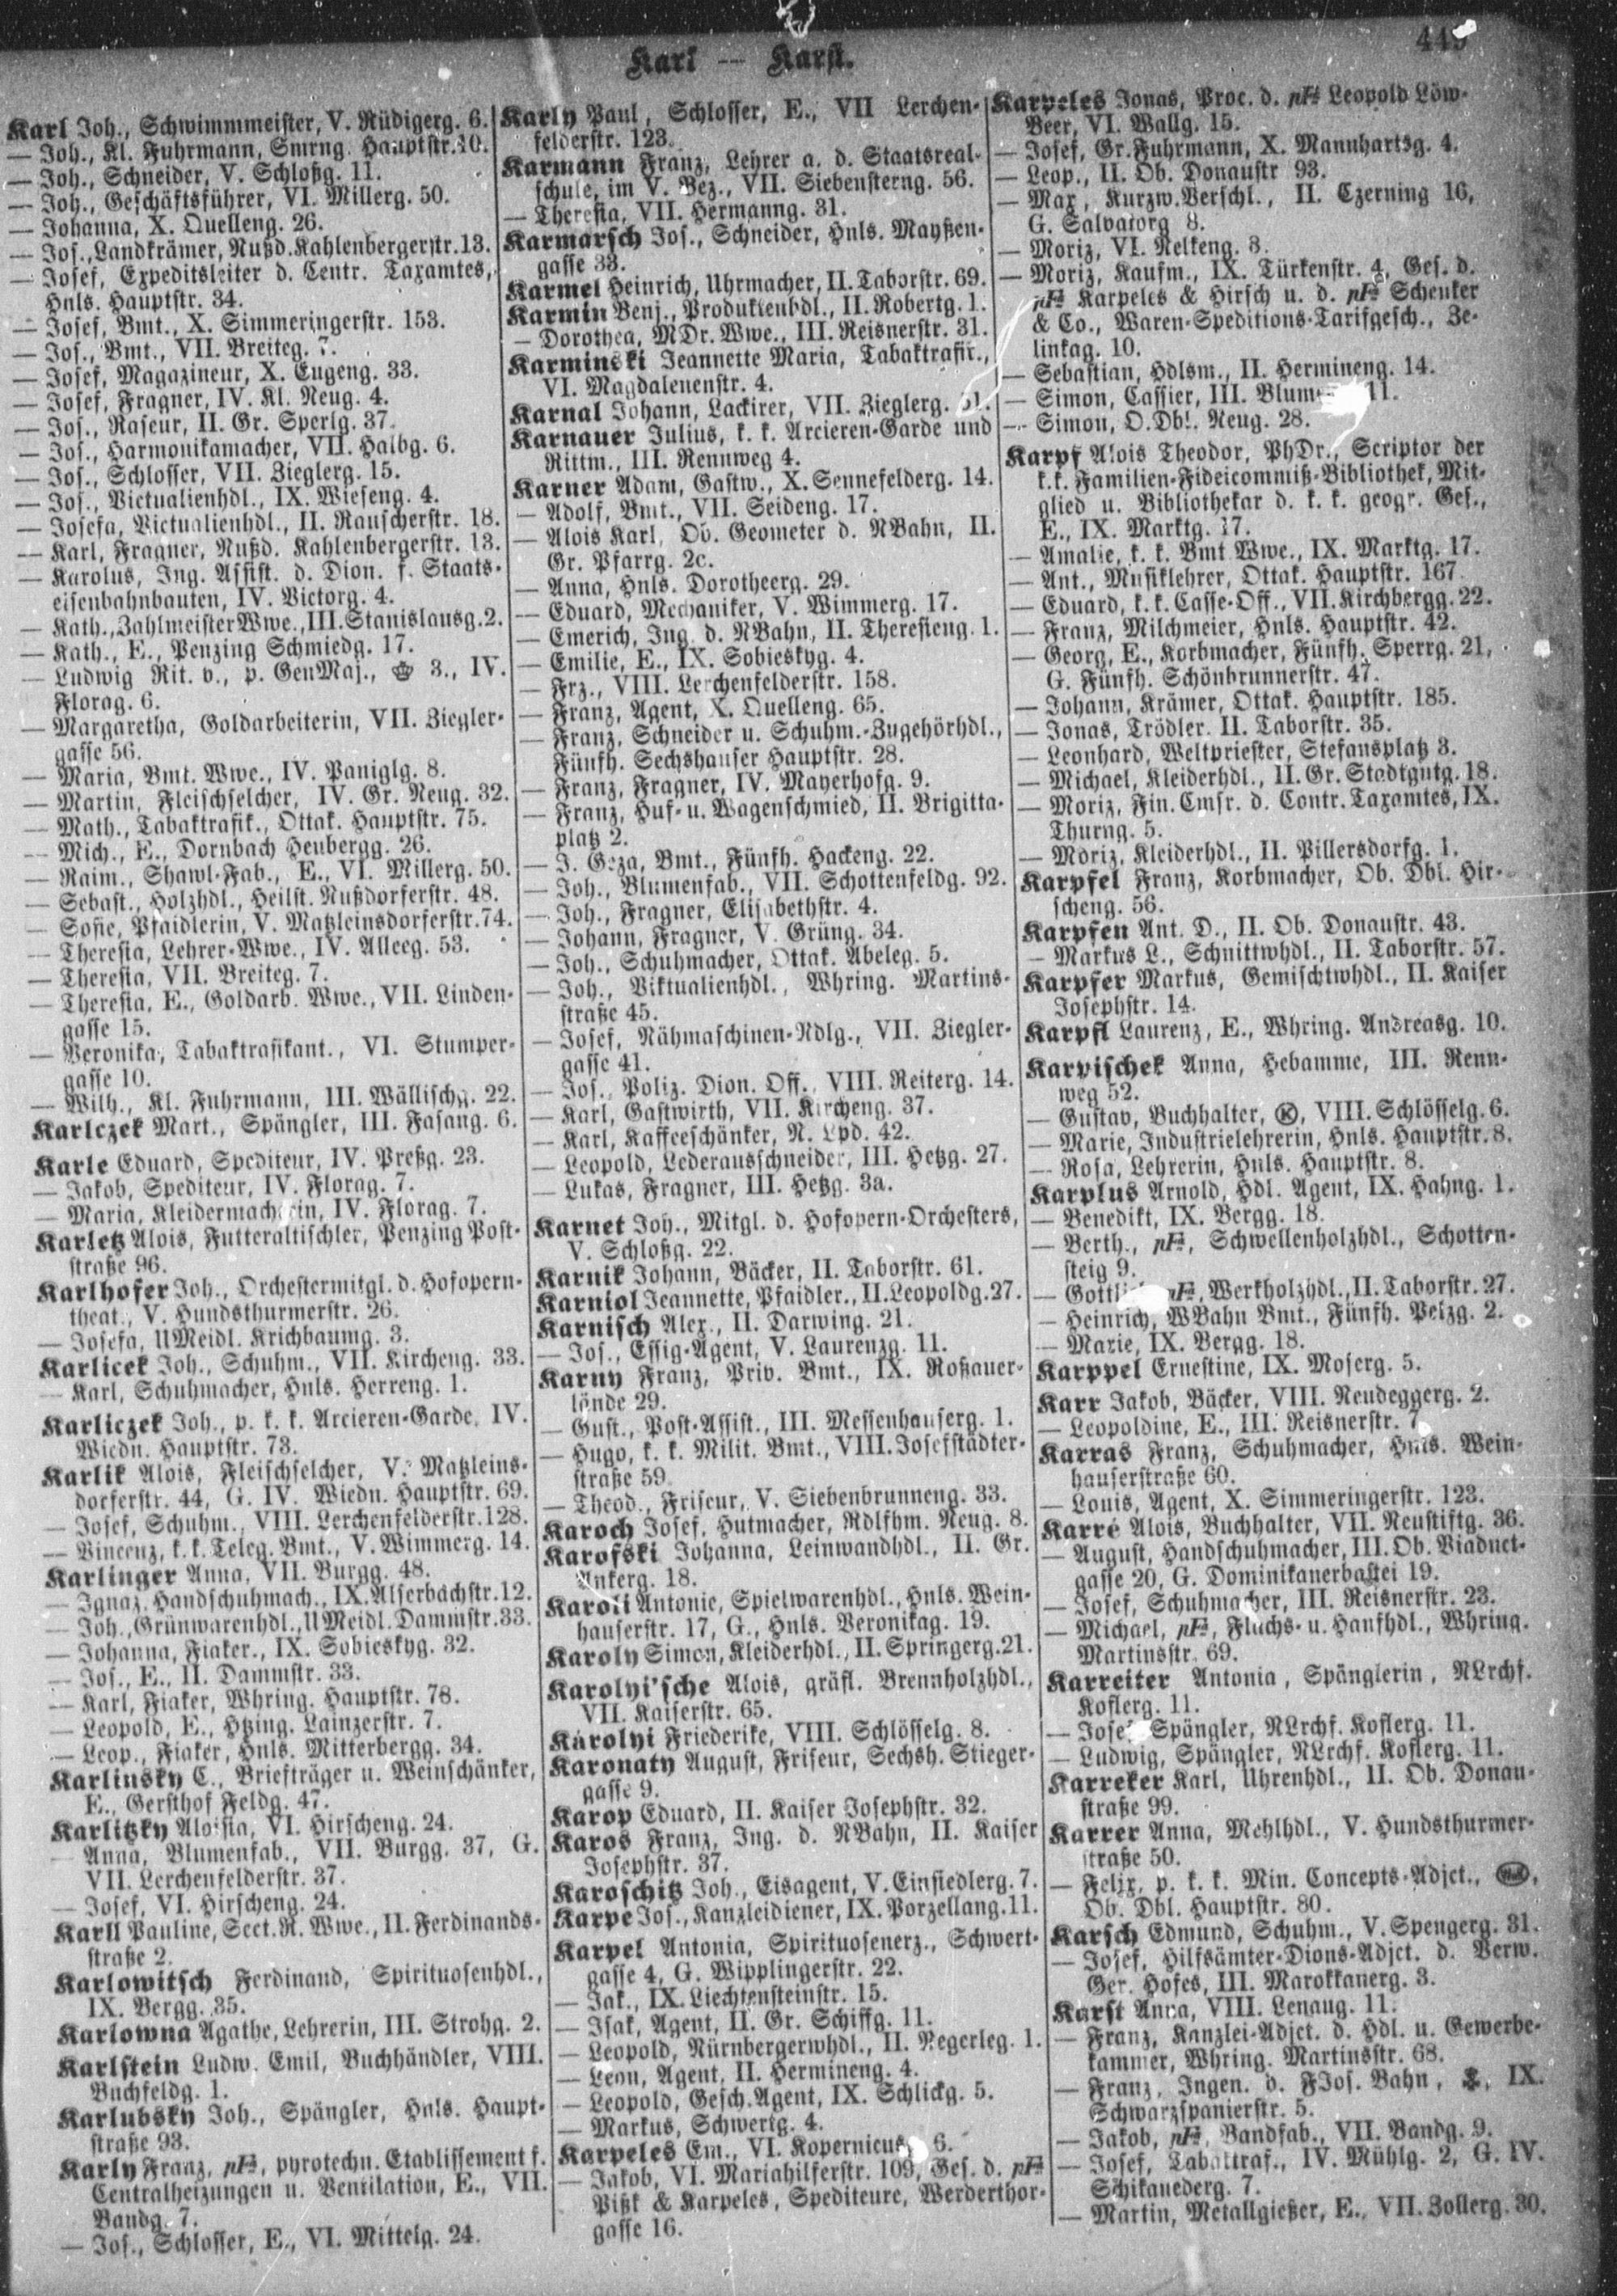 449
Karl — Karst.
Karl Joh., Schwimmmeister, V. Rüdigerg. 6.
— Joh., Kl. Fuhrmann, Smrng. Hauptstr. 10.
— Joh., Schneider, V. Schloßg. 11.
— Joh., Geschäftsführer, VI. Millerg. 50.
— Johanna, X. Quelleng. 26.
— Jos., Landkrämer, Nußd. Kahlenbergerstr. 13.
— Josef, Expeditsleiter d. Centr. Taxamtes,
Hnls. Hauptstr. 34.
— Josef, Bmt., X. Simmeringerstr. 153.
— Jos., Bmt., VII. Breiteg. 7.
— Josef, Magazineur, X. Eugeng. 33.
— Josef, Fragner, IV. Kl. Neug. 4.
— Jos., Raseur, II. Gr. Sperlg. 37.
— Jos., Harmonikamacher, VII. Halbg. 6.
— Jos., Schlosser, VII. Zieglerg. 15.
— Jos., Victualienhdl., IX. Wieseng. 4.
— Josefa, Victualienhdl., II. Rauscherstr. 18.
— Karl, Fragner, Nußd. Kahlenbergerstr. 13.
— Karolus, Ing. Assist. d. Dion. f. Staats-
eisenbahnbauten, IV. Victorg. 4.
— Kath., Zahlmeister Wwe., III. Stanislausg. 2.
— Kath., E., Penzing Schmiedg. 17.
— Ludwig Rit. v., p. GenMaj., 3., IV.
Florag. 6.
— Margaretha, Goldarbeiterin, VII. Ziegler-
gasse 56.
— Maria, Bmt. Wwe., IV. Paniglg. 8.
— Martin, Fleischselcher, IV. Gr. Neug. 32.
— Math., Tabaktrafik., Ottak. Hauptstr. 75.
— Mich., E., Dornbach Heubergg. 26.
— Raim., Shawl-Fab., E., VI. Millerg. 50.
— Sebast., Holzhdl., Heilst. Nußdorferstr. 48.
— Sofie, Pfaidlerin, V. Matzleinsdorferstr. 74.
— Theresia, Lehrer-Wwe., IV. Alleeg. 53.
— Theresia, VII. Breiteg. 7.
— Theresia, E., Goldarb. Wwe., VII. Linden-
gasse 15.
— Veronika, Tabaktrafikant., VI. Stumper-
gasse 10.
— Wilh., Kl. Fuhrmann, III. Wällischg. 22.
Karlczek Mart., Spängler, III. Fasang. 6.
Karle Eduard, Spediteur, IV. Preßg. 23.
— Jakob, Spediteur, IV. Florag. 7.
— Maria, Kleidermacherin, IV. Florag. 7.
Karletz Alois, Futteraltischler, Penzing Post-
straße 96.
Karlhofer Joh., Orchestermitgl. d. Hofopern-
theat., V. Hundsthurmerstr. 26.
— Josefa, UMeidl. Krichbaumg. 3.
Karlicek Joh., Schuhm., VII. Kircheng. 33.
— Karl, Schuhmacher, Hnls. Herreng. 1.
Karliczek Joh., p. k. k. Arcieren-Garde, IV.
Wiedn. Hauptstr. 73.
Karlik Alois, Fleischselcher, V. Matzleins-
dorferstr. 44, G. IV. Wiedn. Hauptstr. 69.
— Josef, Schuhm., VIII. Lerchenfelderstr. 128.
— Vincenz, k. k. Teleg. Bmt., V. Wimmerg. 14.
Karlinger Anna, VII. Burgg. 48.
— Ignaz, Handschuhmach., IX. Alserbachstr. 12.
— Joh., Grünwarenhdl., UMeidl. Dammstr. 33.
— Johanna, Fiaker., IX. Sobieskyg. 32.
— Jos., E., II. Dammstr. 33.
— Karl, Fiaker, Whring. Hauptstr. 78.
— Leopold, E., Htzing. Lainzerstr. 7.
— Leop., Fiaker, Hnls. Mitterbergg. 34.
Karlinsky C., Briefträger u. Weinschänker,
E., Gersthof Feldg. 47.
Karlitzky Aloisia, VI. Hirscheng. 24.
— Anna, Blumenfab., VII. Burgg. 37, G.
VII. Lerchenfelderstr. 37.
— Josef, VI. Hirscheng. 24.
Karll Pauline, Sect. R. Wwe., II. Ferdinands-
straße 2.
Karlowitsch Ferdinand, Spirituosenhdl.,
IX. Bergg. 35.
Karlowna Agathe, Lehrerin, III. Strohg. 2.
Karlstein Ludw. Emil, Buchhändler, VIII.
Buchfeldg. 1.
Karlubsky Joh., Spängler, Hnls. Haupt-
straße 93.
Karly Franz, pF., pyrotechn. Etablissement f.
Centralheizungen u. Ventilation, E., VII.
Bandg. 7.
— Jos., Schlosser, E., VI. Mittelg. 24.
Karly Paul, Schlosser, E., VII Lerchen-
felderstr. 123.
Karmann Franz, Lehrer a. d. Staatsreal-
schule, im V. Bez., VII. Siebensterng. 56.
— Theresia, VII. Hermanng. 31.
Karmarsch Jos., Schneider, Hnls. Mayßen-
gasse 33.
Karmel Heinrich, Uhrmacher, II. Taborstr. 69.
Karmin Benj., Produktenhdl., II. Robertg. 1.
— Dorothea, MDr. Wwe., III. Reisnerstr. 31.
Karminski Jeannette Maria, Tabaktrafik.,
VI. Magdalenenstr. 4.
Karnal Johann, Lackirer, VII. Zieglerg.
Karnauer Julius, k. k. Arcieren-Garde und
Rittm., III. Rennweg 4.
Karner Adam, Gastw., X. Sennefelderg. 14.
— Adolf, Bmt., VII. Seideng. 17.
— Alois Karl, Ob. Geometer d. NBahn, II.
Gr. Pfarrg. 2c.
— Anna, Hnls. Dorotheerg. 29.
— Eduard, Mechaniker, V. Wimmerg. 17.
— Emerich, Ing. d. NBahn, II. Theresieng. 1.
— Emilie, E., IX. Sobieskyg. 4.
— Frz., VIII. Lerchenfelderstr. 158.
— Franz, Agent, X. Quelleng. 65.
— Franz, Schneider u. Schuhm.-Zugehörhdl.,
Fünfh. Sechshauser Hauptstr. 28.
— Franz, Fragner, IV. Mayerhofg. 9.
— Franz, Huf- u. Wagenschmied, II. Brigitta-
platz 2.
— J. Geza, Bmt., Fünfh. Hackeng. 22.
— Joh., Blumenfab., VII. Schottenfeldg. 92.
— Joh., Fragner, Elisabethstr. 4.
— Johann, Fragner, V. Grüng. 34.
— Joh., Schuhmacher, Ottak. Abeleg. 5.
— Joh., Viktualienhdl., Whring. Martins-
straße 45.
— Josef, Nähmaschinen-Ndlg., VII. Ziegler-
gasse 41.
— Jos., Poliz. Dion. Off., VIII. Reiterg. 14.
— Karl, Gastwirth, VII. Kircheng. 37.
— Karl, Kaffeeschänker, N. Lpd. 42.
— Leopold, Lederausschneider, III. Hetzg. 27.
— Lukas, Fragner, III. Hetzg. 3a.
Karnet Joh., Mitgl. d. Hofopern-Orchesters,
V. Schloßg. 22.
Karnik Johann, Bäcker, II. Taborstr. 61.
Karniol Jeannette, Pfaidler., II. Leopoldg. 27.
Karnisch Alex., II. Darwing. 21.
— Jos., Essig-Agent, V. Laurenzg. 11.
Karny Franz, Priv. Bmt., IX. Roßauer-
lände 29.
— Gust., Post-Assist., III. Messenhauserg. 1.
— Hugo, k. k. Milit. Bmt., VIII. Josefstädter-
straße 59.
— Theod., Friseur, V. Siebenbrunneng. 33.
Karoch Josef, Hutmacher, Rdlfhm. Neug. 8.
Karofski Johanna, Leinwandhdl., II. Gr.
Ankerg. 18.
Karoli Antonie, Spielwarenhdl., Hnls. Wein-
hauserstr. 17, G., Hnls. Veronikag. 19.
Karoly Simon, Kleiderhdl., II. Springerg. 21.
Karolyi'sche Alois, gräfl. Brennholzhdl.,
VII. Kaiserstr. 65.
Károlyi Friederike, VIII. Schlösselg. 8.
Karonaty August, Friseur, Sechsh. Stieger-
gasse 9.
Karop Eduard, II. Kaiser Josephstr. 32.
Karos Franz, Ing. d. NBahn, II. Kaiser
Josephstr. 37.
Karoschitz Joh., Eisagent, V. Einsiedlerg. 7.
Karpe Jos., Kanzleidiener, IX. Porzellang. 11.
Karpel Antonia, Spirituosenerz., Schwert-
gasse 4, G. Wipplingerstr. 22.
— Jak., IX. Liechtensteinstr. 15.
— Isak, Agent, II. Gr. Schiffg. 11.
— Leopold, Nürnbergerwhdl., II. Negerleg. 1.
— Leon, Agent, II. Hermineng. 4.
— Leopold, Gesch. Agent, IX. Schlickg. 5.
— Markus, Schwertg. 4.
Karpeles Em., VI. Kopernicus 6.
— Jakob, VI. Mariahilferstr. 109, Ges. d. pF.
Pißk & Karpeles, Spediteure, Werderthor-
gasse 16.
Karpeles Jonas, Proc. d. pF. Leopold Löw-
Beer, VI. Wallg. 15.
— Josef, Gr. Fuhrmann, X. Mannhartsg. 4.
— Leop., II. Ob. Donaustr 93.
— Max, Kurzw. Verschl., II. Czerning 16,
G. Salvatorg 8.
— Moriz, VI. Nelkeng. 3.
— Moriz, Kaufm., IX. Türkenstr. 4, Ges. d.
pF. Karpeles & Hirsch u. d. pF. Schenker
& Co., Waren-Speditions-Tarifgesch., Ze-
linkag. 10.
— Sebastian, Hdlsm., II. Hermineng. 14.
— Simon, Cassier, III. 11.
— Simon, O. Dbl. Neug. 28.
Karpf Alois Theodor, PhDr., Scriptor der
k. k. Familien-Fideicommiß-Bibliothek, Mit-
glied u. Bibliothekar d. k. k. geogr. Ges.,
E., IX. Marktg. 17.
— Amalie, k. k. Bmt. Wwe., IX. Marktg. 17.
— Ant., Musiklehrer, Ottak. Hauptstr. 167
— Eduard, k. k. Casse-Off., VII. Kirchbergg. 22.
— Franz, Milchmeier, Hnls. Hauptstr. 42.
— Georg, E., Korbmacher, Fünfh. Sperrg. 21,
G. Fünfh. Schönbrunnerstr. 47.
— Johann, Krämer, Ottak. Hauptstr. 185.
— Jonas, Trödler. II. Taborstr. 35.
— Leonhard, Weltpriester, Stefansplatz 3.
— Michael, Kleiderhdl., II. Gr. Stadtgutg. 18.
— Moriz, Fin. Cmsr. d. Contr. Taxamtes, IX.
Thurng. 5.
— Moriz, Kleiderhdl., II. Pillersdorfg. 1.
Karpfel Franz, Korbmacher, Ob. Dbl. Hir-
scheng. 56.
Karpfen Ant. D., II. Ob. Donaustr. 43.
— Markus L., Schnittwhdl., II. Taborstr. 57.
Karpfer Markus, Gemischtwhdl., II. Kaiser
Josephstr. 14.
Karpfl Laurenz, E., Whring. Andreasg. 10.
Karpischek Anna, Hebamme, III. Renn-
weg 52.
— Gustav, Buchhalter, Ⓚ, VIII. Schlösselg. 6.
— Marie, Industrielehrerin, Hnls. Hauptstr. 8.
— Rosa, Lehrerin, Hnls. Hauptstr. 8.
Karplus Arnold, Hdl. Agent, IX. Hahng. 1.
— Benedikt, IX. Bergg. 18.
— Berth., pF., Schwellenholzhdl., Schotten-
steig 9.
— pF., Werkholzhdl., II. Taborstr. 27.
— Heinrich, WBahn Bmt., Fünfh. Pelzg. 2.
— Marie, IX. Bergg. 18.
Karppel Ernestine, IX. Moserg. 5.
Karr Jakob, Bäcker, VIII. Neudeggerg. 2.
— Leopoldine, E., III. Reisnerstr. 7
Karras Franz, Schuhmacher, Hnls. Wein-
hauserstraße 60.
— Louis, Agent, X. Simmeringerstr. 123.
Karré Alois, Buchhalter, VII. Neustiftg. 36.
— August, Handschuhmacher, III. Ob. Viaduct-
gasse 20, G. Dominikanerbastei 19.
— Josef, Schuhmacher, III. Reisnerstr. 23.
— Michael, pF., Flachs- u. Hanfhdl., Whring.
Martinsstr. 69.
Karreiter Antonia, Spänglerin, NLrchf.
Koflerg. 11.
— Josef, Spängler, NLrchf. Koflerg. 11.
— Ludwig, Spängler, NLrchf. Koflerg. 11.
Karreker Karl, Uhrenhdl., II. Ob. Donau-
straße 99.
Karrer Anna, Mehlhdl., V. Hundsthurmer-
straße 50.
— Felix, p. k. k. Min. Concepts-Adjct.,
Ob. Dbl. Hauptstr. 80.
Karsch Edmund, Schuhm., V. Spengerg. 31.
— Josef, Hilfsämter-Dions-Adjct. d. Verw.
Ger. Hofes, III. Marokkanerg. 3.
Karst Anna, VIII. Lenaug. 11.
— Franz, Kanzlei-Adjct. d. Hdl. u. Gewerbe-
kammer, Whring. Martinsstr. 68.
— Franz, Ingen. d. FJos. Bahn, IX.
Schwarzspanierstr. 5.
— Jakob, pF., Bandfab., VII. Bandg. 9.
— Josef, Tabaktraf., IV. Mühlg. 2, G. IV.
Schikanederg. 7.
— Martin, Metallgießer, E., VII. Zollerg. 30.